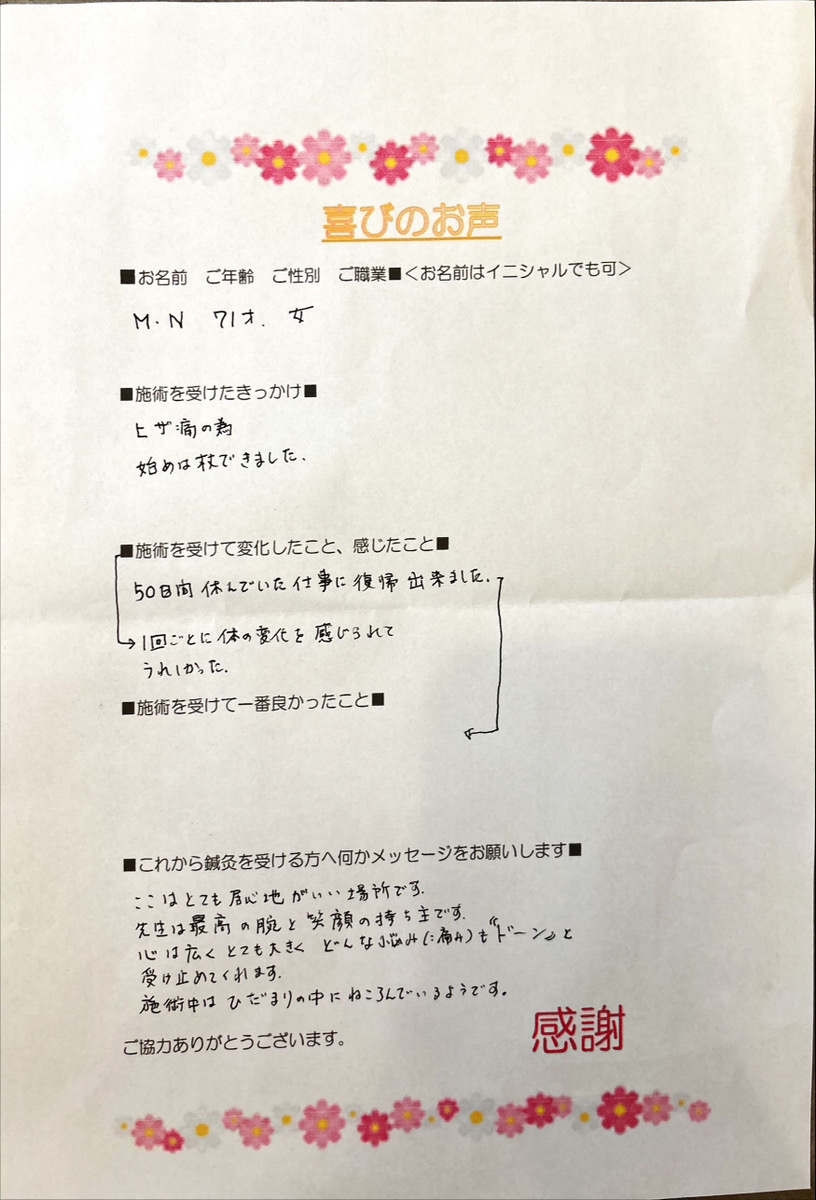 喜びのお声
■お名前　ご年齢　ご性別　ご職業■＜お名前はイニシャルでも可＞
M・N　71才．女
■施術を受けたきっかけ■
ヒザ痛の為
始めは杖できました．
■施術を受けて変化したこと、感じたこと■
50日間 休んでいた 仕事に 復帰 出来ました．
→1回ごとに 体の変化を 感じられて
うれしかった．
■施術を受けて一番良かったこと■
■これから鍼灸を受ける方へ何かメッセージをお願いします■
ここはとても 居心地がいい 場所です．
先生は最高の腕と 笑顔の持ち主です．
心は広く とても大きく どんな悩み(痛み)も『ドーン』と
受け止めてくれます．
施術中は ひだまりの中に ねころんでいるようです。
感謝
ご協力ありがとうございます。